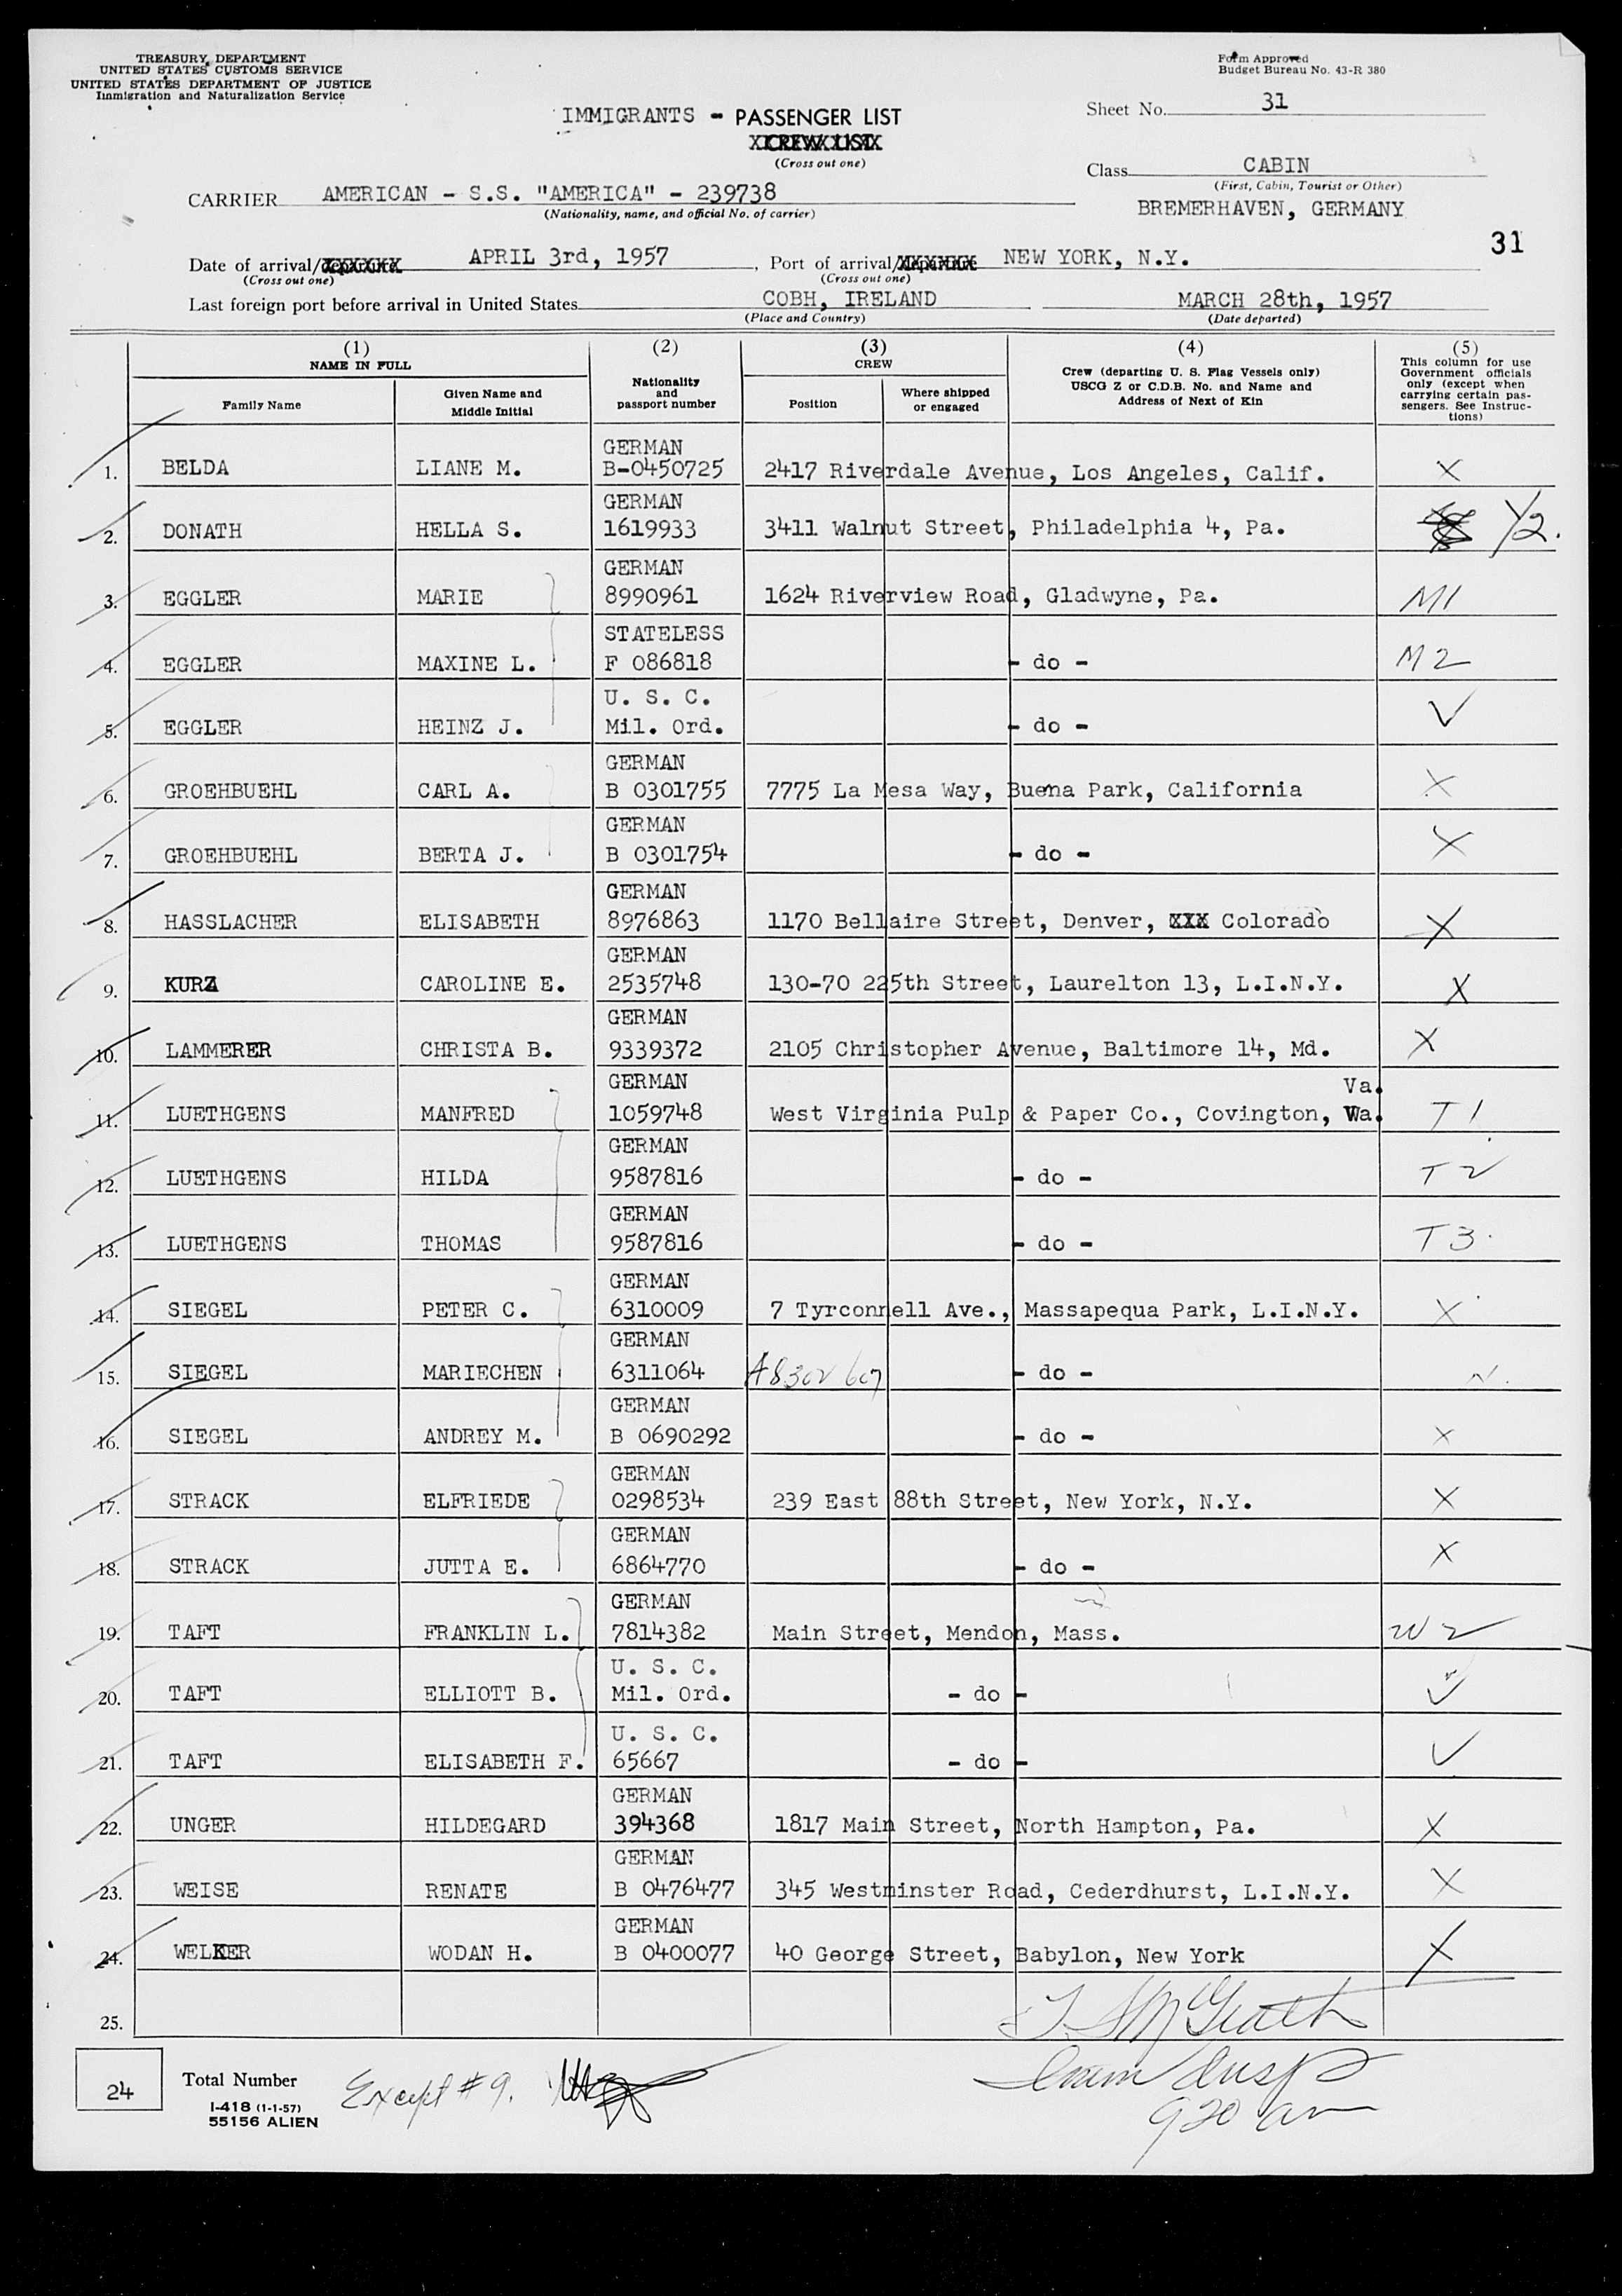 TREASURY DEPARTMENT
UNITED STATES CUSTOMS SERVICE
UNITED STATES DEPARTMENT OF JUSTICE
Immigration and Naturalization Service
Form Approved
Budget Bureau No. 43-R 380
IMMIGRANTS - PASSENGER LIST
CREW LIST
(Cross out one)
Sheet No. 31
Class CABIN
(First, Cabin, Tourist or Other)
BREMERHAVEN, GERMANY
31
CARRIER AMERICAN - S.S. "AMERICA" - 239738
(Nationality, name, and official No. of carrier)
Date of arrival/departure APRIL 3rd, 1957, Port of arrival/departure NEW YORK, N.Y.
(Cross out one) (Cross out one)
Last foreign port before arrival in United States COBH, IRELAND MARCH 28th, 1957
(Place and Country) (Date departed)
(1) NAME IN FULL
Family Name
Given Name and Middle Initial
(2)
Nationality and passport number
(3) CREW
Position
Where shipped or engaged
(4)
Crew (departing U. S. Flag Vessels only) USCG Z or C.D.B. No. and Name and Address of Next of Kin
(5)
This column for use Government officials only (except when carrying certain passengers. See Instructions)
1. BELDA LIANE M. GERMAN B-0450725 2417 Riverdale Avenue, Los Angeles, Calif. X
2. DONATH HELLA S. GERMAN 1619933 3411 Walnut Street, Philadelphia 4, Pa. Y2.
3. EGGLER MARIE GERMAN 8990961 1624 Riverview Road, Gladwyne, Pa. M1
4. EGGLER MAXINE L. STATELESS F 086818 - do - M2
5. EGGLER HEINZ J. U. S. C. Mil. Ord. - do - ✓
6. GROEHBUEHL CARL A. GERMAN B 0301755 7775 La Mesa Way, Buena Park, California X
7. GROEHBUEHL BERTA J. GERMAN B 0301754 - do - X
8. HASSLACHER ELISABETH GERMAN 8976863 1170 Bellaire Street, Denver, XXX Colorado X
9. KURZ CAROLINE E. GERMAN 2535748 130-70 225th Street, Laurelton 13, L.I.N.Y. X
10. LAMMERER CHRISTA B. GERMAN 9339372 2105 Christopher Avenue, Baltimore 14, Md. X
11. LUETHGENS MANFRED GERMAN 1059748 West Virginia Pulp & Paper Co., Covington, Va. Va. T1
12. LUETHGENS HILDA GERMAN 9587816 - do - T2
13. LUETHGENS THOMAS GERMAN 9587816 - do - T3
14. SIEGEL PETER C. GERMAN 6310009 7 Tyrconnell Ave., Massapequa Park, L.I.N.Y. X
15. SIEGEL MARIECHEN GERMAN 6311064 A8302 607 - do -
16. SIEGEL ANDREY M. GERMAN B 0690292 - do - X
17. STRACK ELFRIEDE GERMAN 0298534 239 East 88th Street, New York, N.Y. X
18. STRACK JUTTA E. GERMAN 6864770 - do - X
19. TAFT FRANKLIN L. GERMAN 7814382 Main Street, Mendon, Mass. W2
20. TAFT ELLIOTT B. U. S. C. Mil. Ord. - do - ✓
21. TAFT ELISABETH F. U. S. C. 65667 - do - ✓
22. UNGER HILDEGARD GERMAN 394368 1817 Main Street, North Hampton, Pa. X
23. WEISE RENATE GERMAN B 0476477 345 Westminster Road, Cederdhurst, L.I.N.Y. X
24. WELKER WODAN H. GERMAN B 0400077 40 George Street, Babylon, New York X
25.
24 Total Number
I-418 (1-1-57)
55156 ALIEN
Except #9.
Imm Insp
920 am